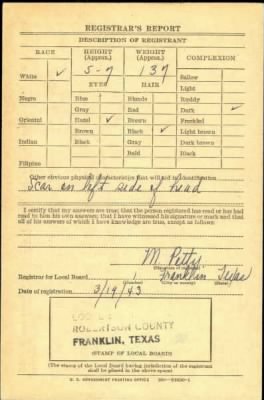 REGISTRAR'S REPORT
DESCRIPTION OF REGISTRANT
RACE HEIGHT (Approx.) WEIGHT (Approx.) COMPLEXION
White ✓ 5-7 137 Sallow
EYES HAIR Light
Negro Blue Blonde Ruddy
Gray Red Dark ✓
Oriental Hazel ✓ Brown Freckled
Brown Black ✓ Light brown
Indian Black Gray Dark brown
Bald Black
Filipino
Other obvious physical characteristics that will aid in identification
Scar on left side of head
I certify that my answers are true; that the person registered has read or has had
read to him his own answers; that I have witnessed his signature or mark and that
all of his answers of which I have knowledge are true, except as follows:
M. Petty
(Signature of registrar)
Registrar for Local Board Franklin Texas
(Number) (City or county) (State)
Date of registration 3/19/43
ROBERTSON COUNTY
FRANKLIN, TEXAS
(STAMP OF LOCAL BOARD)
(The stamp of the Local Board having jurisdiction of the registrant
shall be placed in the above space)
U. S. GOVERNMENT PRINTING OFFICE